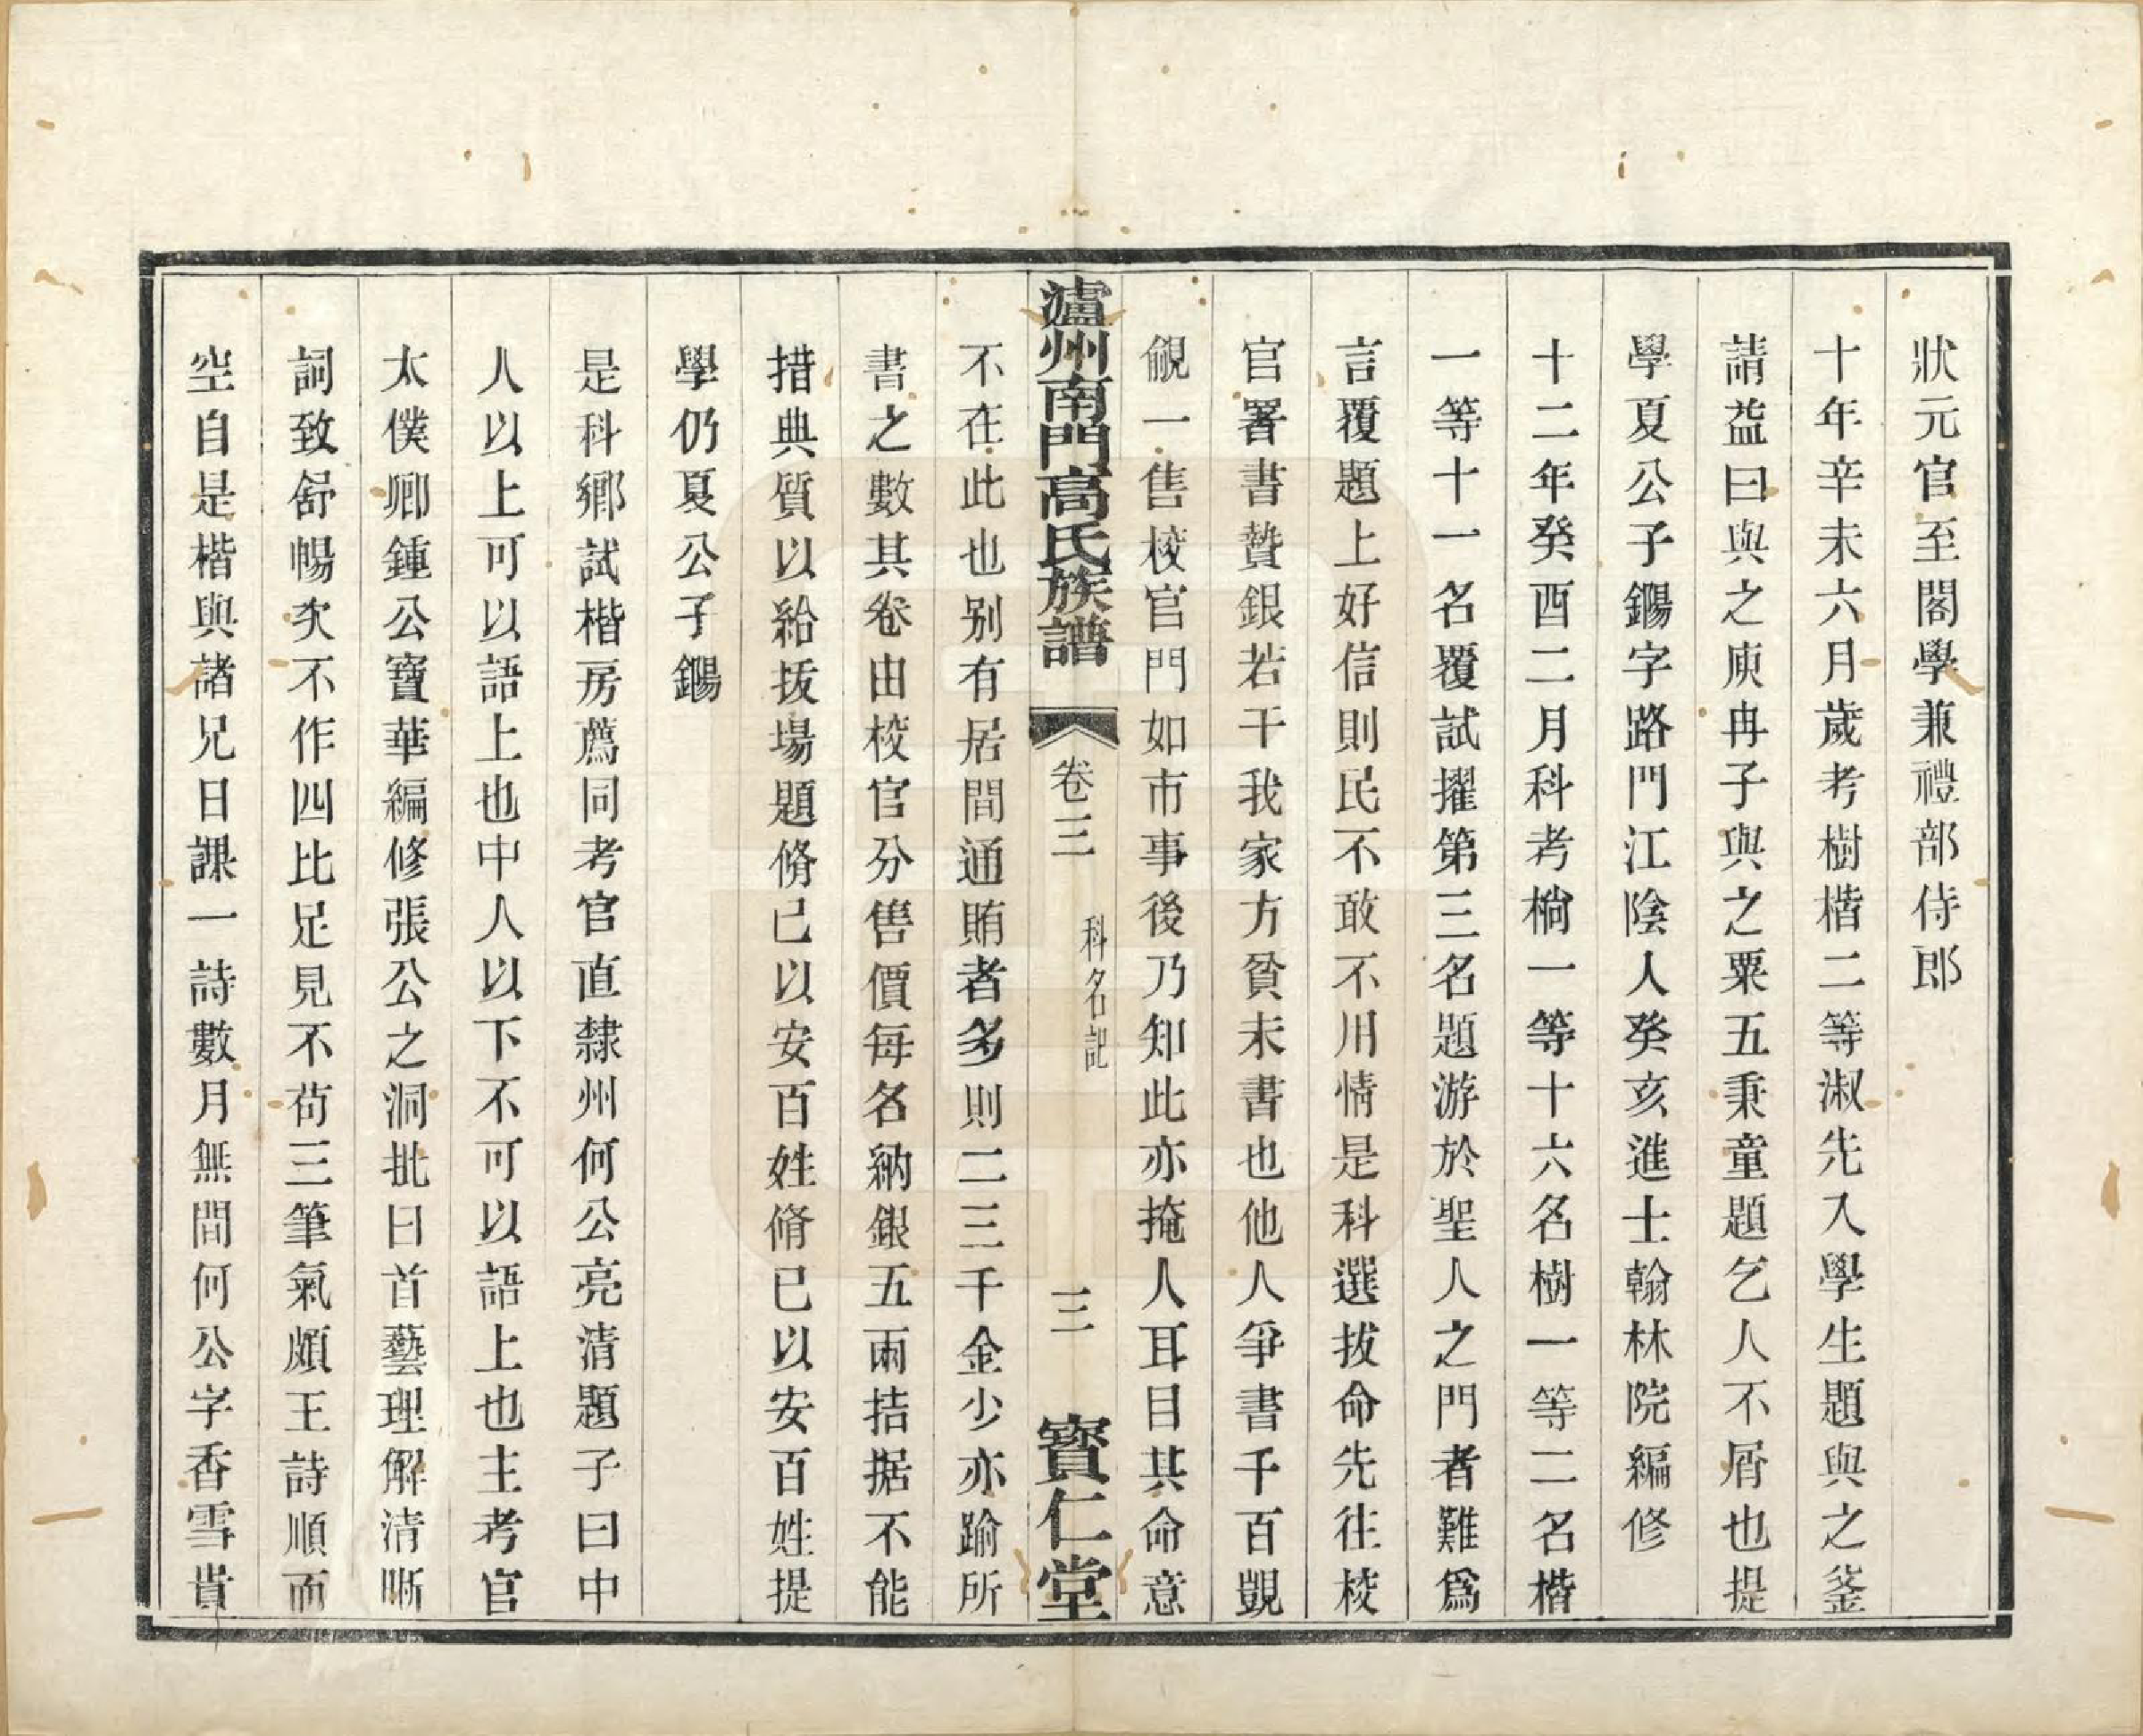 狀元官至閣學兼禮部侍郎
十年辛未六月歲考樹楷二等淑先入學生題與之釜
請益曰與之庾冉子與之粟五秉童題乞人不屑也提
學夏公子鐊字路門江陰人癸亥進士翰林院編修
十二年癸酉二月科考樹一等十六名樹一等二名楷
一等十一名覆試擢第三名題游於聖人之門者難爲
言覆題上好信則民不敢不用情是科選拔命先往校
官署書贄銀若干我家方貧未書也他人爭書千百覬
覦一售校官門如市事後乃知此亦掩人耳目其命意
瀘州南門高氏族譜 卷三 科名記 三 寶仁堂
不在此也别有居間通賄者多則二三千金少亦踰所
書之數其卷由校官分售價每名納銀五兩拮据不能
措典質以給拔場題脩己以安百姓脩已以安百姓提
學仍夏公子鐊
是科鄉試楷房薦同考官直隸州何公亮清題子曰中
人以上可以語上也中人以下不可以語上也主考官
太僕卿鍾公寶華編修張公之洞批曰首藝理解清晰
詞致舒暢次不作四比足見不苟三筆氣頗王詩順而
空自是楷與諸兄日課一詩數月無間何公字香雪貴